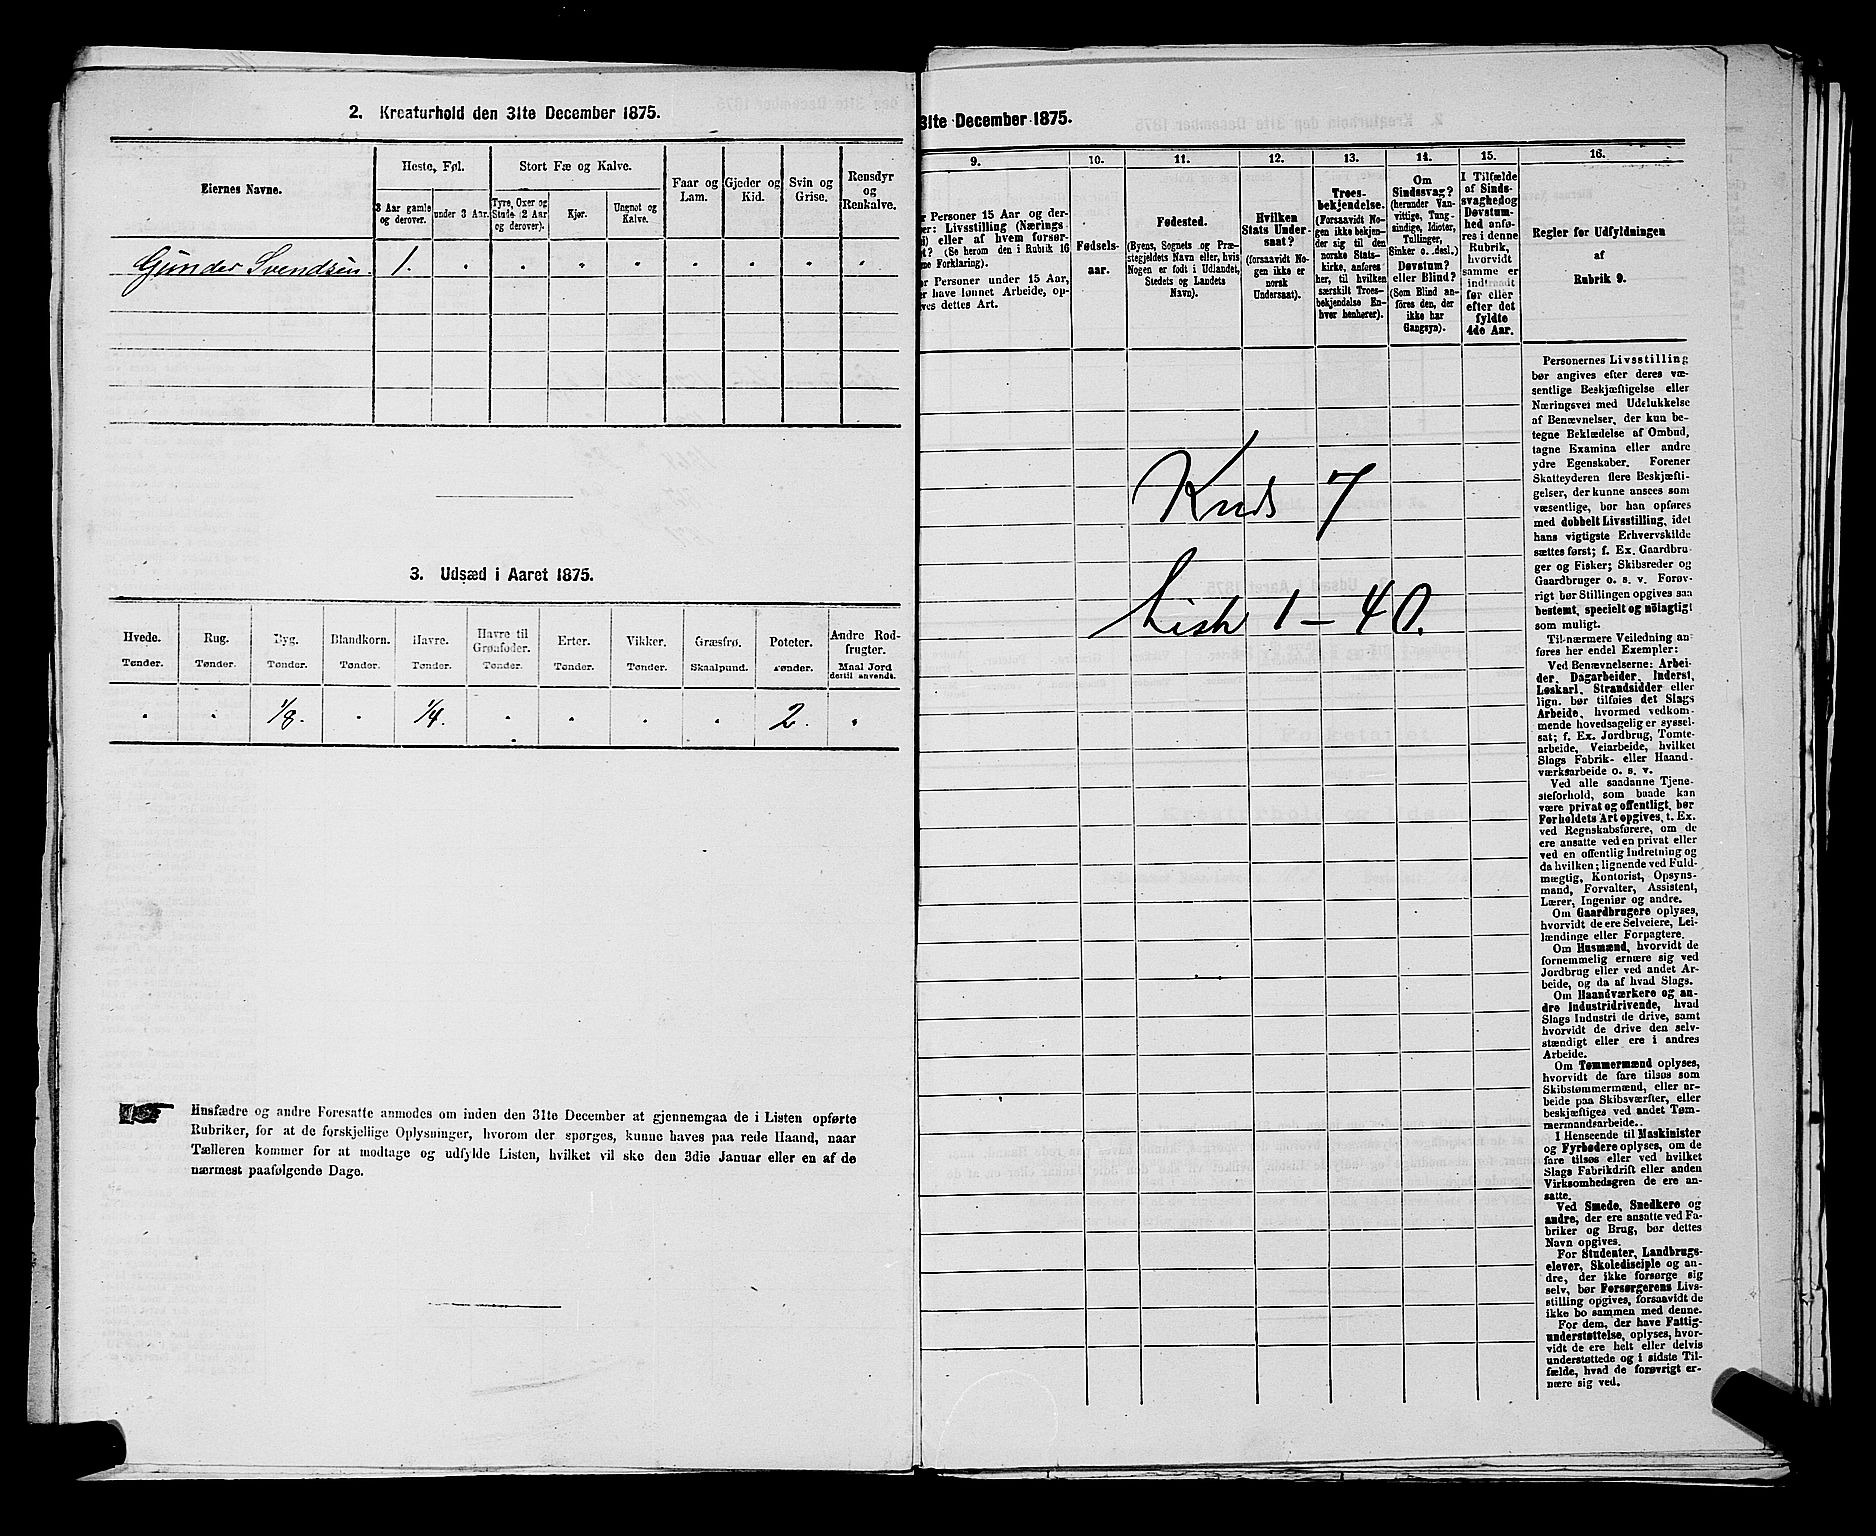 2. Kreaturhold den 31te December 1875.
Eiernes Navne.
Heste, Føl.
Stort Fæ og Kalve.
Faar og Lam.
Gjeder og Kid.
Svin og Grise.
Rensdyr og Renkalve.
3 Aar gamle og derover.
under 3 Aar.
Tyre, Oxer og Stude (2 Aar og derover).
Kjør.
Ungnøt og Kalve.
Gunder Svendsen. 1. " " " " " " " "
3. Udsæd i Aaret 1875.
Hvede. Rug. Byg. Blandkorn. Havre. Havre til Grønfoder. Erter. Vikker. Græsfrø. Poteter. Andre Rodfrugter.
Tønder. Tønder. Tønder. Tønder. Tønder. Tønder. Tønder. Tønder. Skaalpund. Tønder. Maal Jord dertil anvendt.
" " 1/8. " 1/4. " " " " 2. "
Husfædre og andre Foresatte anmodes om inden den 31te December at gjennemgaa de i Listen opførte
Rubriker, for at de forskjellige Oplysninger, hvorom der spørges, kunne haves paa rede Haand, naar
Tælleren kommer for at modtage og udfylde Listen, hvilket vil ske den 3die Januar eller en af de
nærmest paafølgende Dage.
31te December 1875.
9. 10. 11. 12. 13. 14. 15. 16.
r Personer 15 Aar og der-
er: Livsstilling (Nærings-
) eller af hvem forsør-
t? (Se herom den i Rubrik 16
ne Forklaring).
r Personer under 15 Aar,
r have lønnet Arbeide, op-
ves dettes Art.
Fødsels-
aar.
Fødested.
(Byens, Sognets og Præ-
stegjeldets Navn eller, hvis
Nogen er født i Udlandet,
Stedets og Landets
Navn).
Hvilken
Stats Under-
saat?
(forsaavidt No-
gen ikke er
norsk
Undersaat).
Troes-
bekjendelse.
(Forsaavidt No-
gen ikke bekjen-
der sig til den
norske Stats-
kirke, anføres
her, til hvilken
særskilt Troes-
bekjendelse En-
hver henhører).
Om
Sindssvag?
(herunder Van-
vittige, Tung-
sindige, Idioter,
Tullinger,
Sinker o. desl.).
Døvstum?
eller Blind?
(Som Blind an-
føres den, der
ikke har
Gangsyn).
I Tilfælde
af Sinds-
svaghed og
Døvstum-
hed anfø-
res i denne
Rubrik,
hvorvidt
samme er
indtraadt
før eller
efter det
fyldte
4de Aar.
Regler for Udfyldningen
af
Rubrik 9.
Kreds 7
Liste 1 – 40.
Personernes Livsstilling
bør angives efter deres væ-
sentlige Beskjæftigelse eller
Næringsvei med Udelukkelse
af Benævnelser, der kun be-
tegne Beklædelse af Ombud,
tagne Examina eller andre
ydre Egenskaber. Forener
Skatteyderen flere Beskjæfti-
gelser, der kunne ansees som
væsentlige, bør han opføres
med dobbelt Livsstilling, idet
hans vigtigste Erhvervskilde
sættes først; f. Ex. Gaardbru-
ger og Fisker; Skibsreder og
Gaardbruger o. s. v. Forøv-
rigt bør Stillingen opgives saa
bestemt, specielt og nøiagtigt
som muligt.
Til nærmere Veiledning an-
føres her endel Exempler:
Ved Benævnelserne: Arbei-
der, Dagarbeider, Inderst,
Løskarl, Strandsidder eller
lign. bør tilføies det Slags
Arbeide, hvormed vedkom-
mende hovedsagelig er syssel-
sat; f. Ex. Jordbrug, Tomte-
arbeide, Veiarbeide, hvilket
Slags Fabrik- eller Haand-
værksarbeide o. s. v.
Ved alle saadanne Tjene-
steforhold, som baade kan
være privat og offentligt, bør
Forholdets Art opgives, t. Ex.
ved Regnskabsførere, om de
ere ansatte ved en privat eller
ved en offentlig Indretning og
da hvilken; lignende ved Fuld-
mægtig, Kontorist, Opsyns-
mand, Forvalter, Assistent,
Lærer, Ingeniør og andre.
Om Gaardbrugere oplyses,
hvorvidt de ere Selveiere, Lei-
lændinge eller Forpagtere.
Om Husmænd, hvorvidt de
fornemmelig ernære sig ved
Jordbrug eller ved andet Ar-
beide, og da af hvad Slags.
Om Haandværkere og an-
dre Industridrivende, hvad
Slags Industri de drive, samt
hvorvidt de drive den selv-
stændigt eller ere i andres
Arbeide.
Om Tømmermænd oplyses,
hvorvidt de fare tilsøs som
Skibstømmermænd, eller ar-
beide paa Skibsværfter, eller
beskjæftiges ved andet Tøm-
mermandsarbeide.
I Henseende til Maskinister
og Fyrbødere oplyses, om de
fare tilsøs eller ved hvilket
Slags Fabrikdrift eller anden
Virksomhedsgren de ere an-
satte.
Ved Smede, Snedkere og
andre, der ere ansatte ved Fa-
briker og Brug, bør dettes
Navn opgives.
For Studenter, Landbrugs-
elever, Skoledisciple og an-
dre, der ikke forsørge sig
selv, bør Forsørgerens Livs-
stilling opgives, forsaavidt de
ikke bo sammen med denne.
For dem, der have Fattig-
understøttelse, oplyses, hvor-
vidt de ere helt eller delvis
understøttede og i sidste Til-
fælde, hvad de forøvrigt er-
nære sig ved.